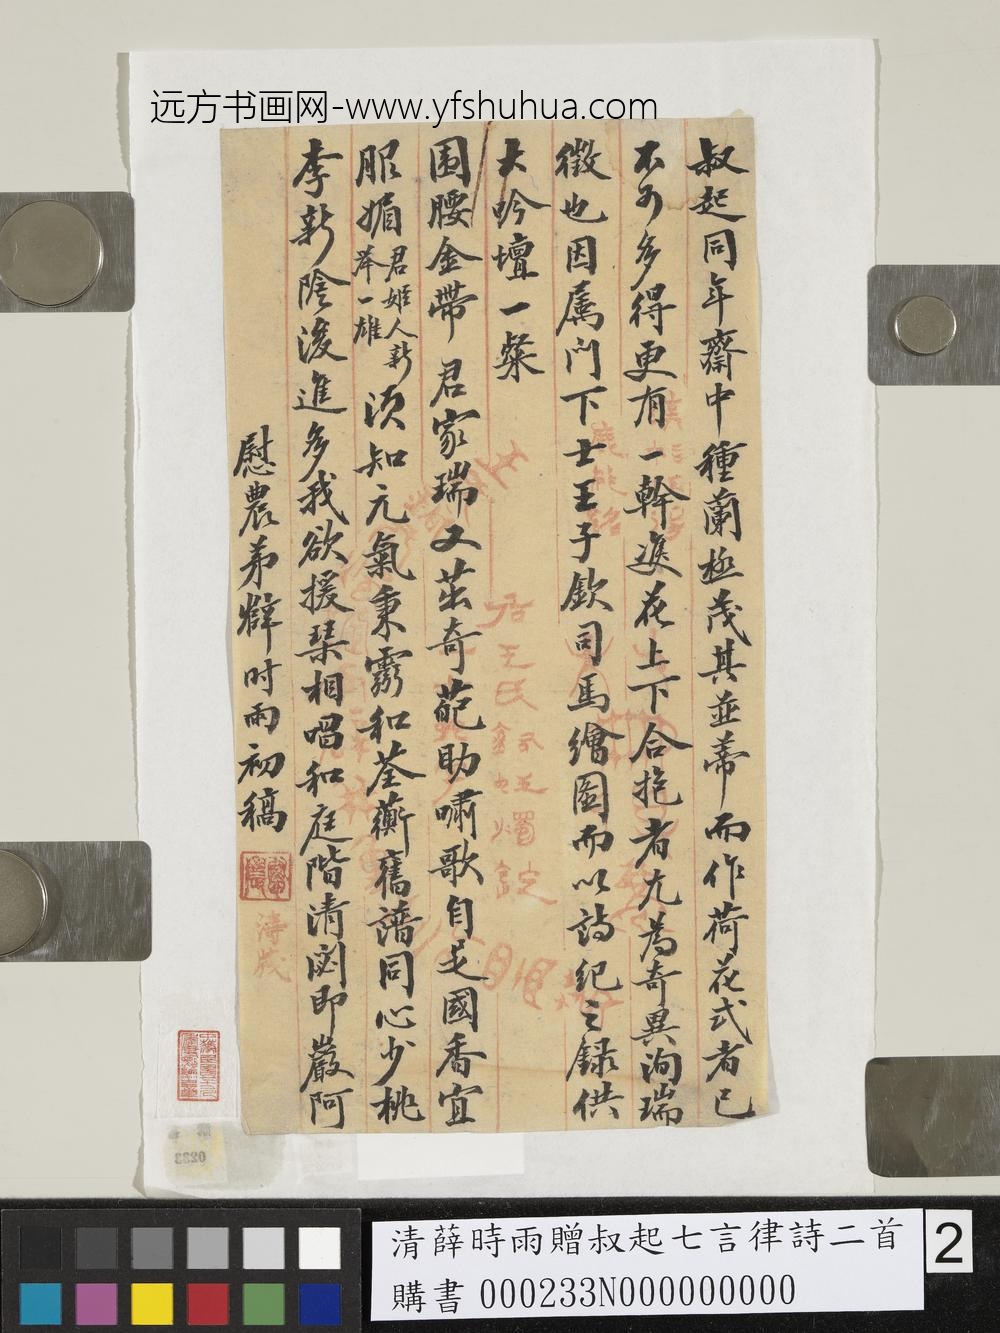 远方书画网-www.yfshuhua.com
叔起同年齋中種蘭極茂其並蒂而作荷花式者已
不可多得更有一幹進花上下合抱者尤為奇異洵瑞
徵也因屬門下士王子欽司馬繪圖而以詩紀之錄供
大吟壇一粲
围腰金帶君家瑞又茁奇葩助嘯歌自是國香宜
服媚君姬人新举一雄須知元氣秉霛和荃蘅舊譜同心少桃
李新陰後進多我欲援琴相唱和庭階清閟即巖阿
慰農弟薛时雨初稿
清薛時雨贈叔起七言律詩二首
購書 000233N000000000
2
0233